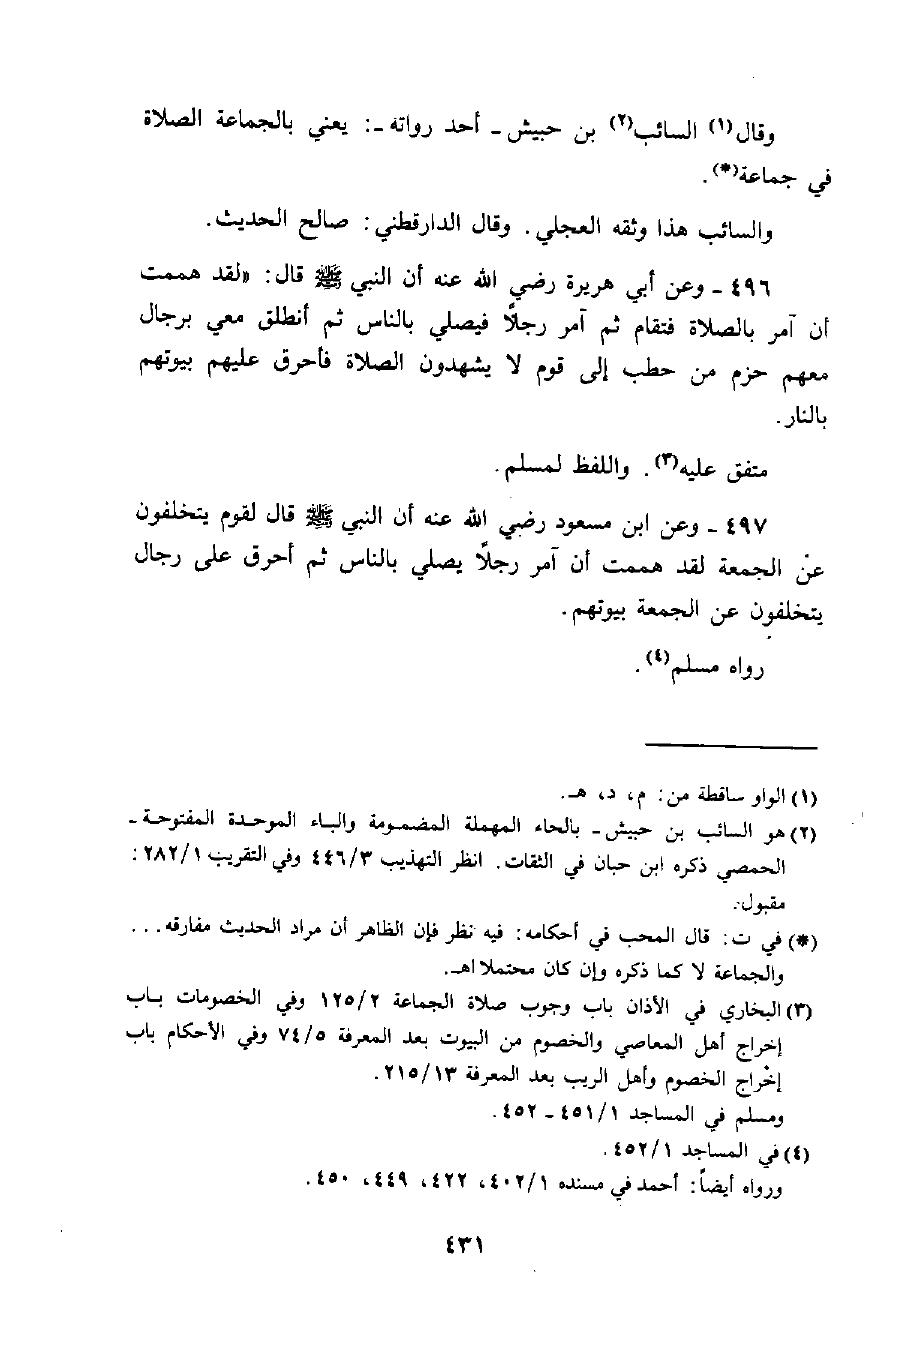 وقال(١) السائب(٢) بن حبيش - أحد رواته -: يعني بالجماعة الصلاة
في جماعة(*).
والسائب هذا وثقه العجلي. وقال الدارقطني: صالح الحديث.
٤٩٦ - وعن أبي هريرة رضي الله عنه أن النبي ﷺ قال: «لقد هممت
أن آمر بالصلاة فتقام ثم آمر رجلاً فيصلي بالناس ثم أنطلق معي برجال
معهم حزم من حطب إلى قوم لا يشهدون الصلاة فأحرق عليهم بيوتهم
بالنار.
متفق عليه(٣). واللفظ لمسلم.
٤٩٧ - وعن ابن مسعود رضي الله عنه أن النبي ﷺ قال لقوم يتخلفون
عن الجمعة لقد هممت أن آمر رجلاً يصلي بالناس ثم أحرق على رجال
يتخلفون عن الجمعة بيوتهم.
رواه مسلم(٤).
(١) الواو ساقطة من: م، د، هـ.
(٢) هو السائب بن حبيش - بالحاء المهملة المضمومة والباء الموحدة المفتوحة -
الحمصي ذكره ابن حبان في الثقات. انظر التهذيب ٤٤٦/٣ وفي التقريب ٢٨٢/١:
مقبول.
(*) في ت: قال المحب في أحكامه: فيه نظر فإن الظاهر أن مراد الحديث مفارقه...
والجماعة لا كما ذكره وإن كان محتملا اهـ.
(٣) البخاري في الأذان باب وجوب صلاة الجماعة ١٢٥/٢ وفي الخصومات باب
إخراج أهل المعاصي والخصوم من البيوت بعد المعرفة ٧٤/٥ وفي الأحكام باب
إخراج الخصوم وأهل الريب بعد المعرفة ٢١٥/١٣.
ومسلم في المساجد ٤٥١/١ - ٤٥٢.
(٤) في المساجد ٤٥٢/١.
ورواه أيضاً: أحمد في مسنده ٤٠٢/١، ٤٢٢، ٤٤٩، ٤٥٠.
٤٣١